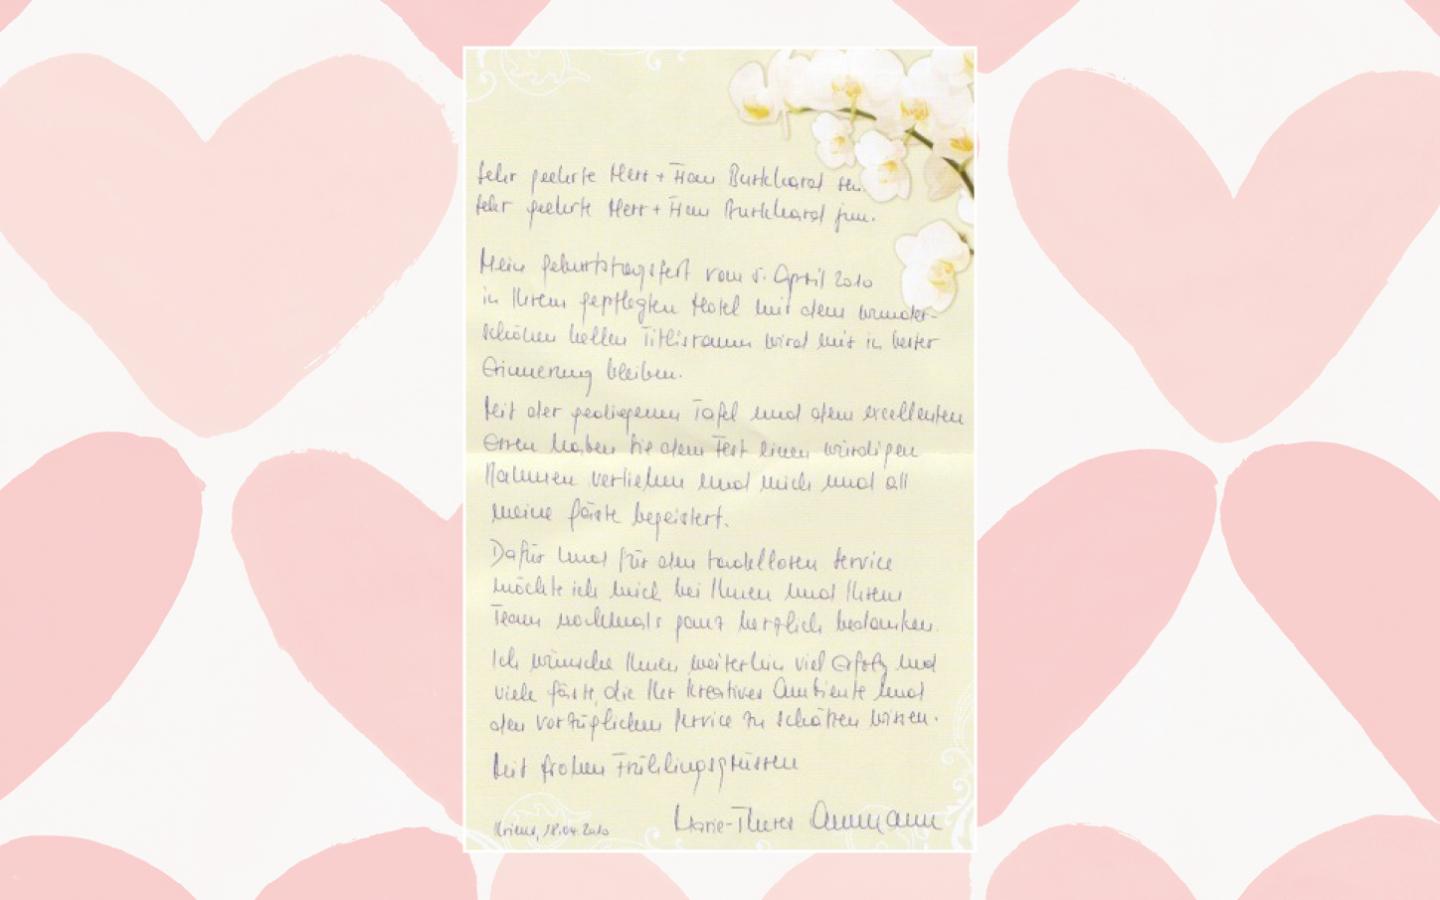 Sehr geehrte Herr + Frau Burkhard sen.
Sehr geehrte Herr + Frau Burkhard jun.
Mein Geburtstagsfest vom 5. April 2010
in Ihrem gepflegten Hotel mit dem wunder-
schönen hellen Titlisraum wird mir in bester
Erinnerung bleiben.
Mit der gediegenen Tafel und dem excellenten
Essen haben Sie dem Fest einen würdigen
Rahmen verliehen und mich und all
meine Gäste begeistert.
Dafür und für den tadellosen Service
möchte ich mich bei Ihnen und Ihrem
Team nochmals ganz herzlich bedanken.
Ich wünsche Ihnen weiterhin viel Erfolg und
viele Gäste, die Ihr kreatives Ambiente und
den vorzüglichen Service zu schätzen wissen.
Mit frohen Frühlingsgrüssen
Marie-Theres Ammann
Kriens, 18.04.2010